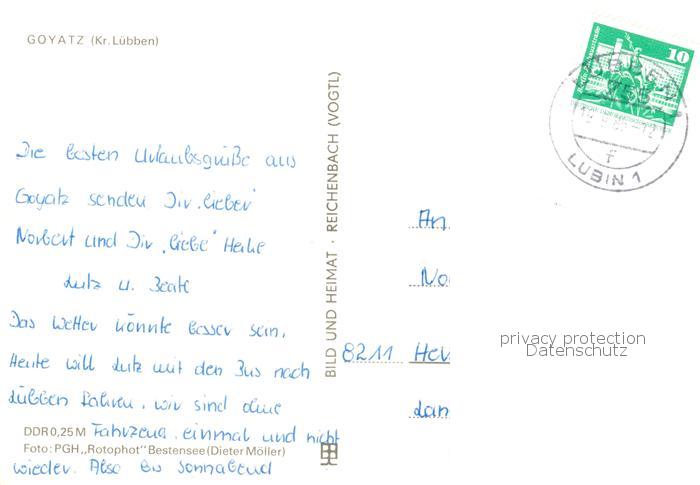 GOYATZ (Kr. Lübben)
10
LÜBBEN
755
F
LUBIN 1
Die besten Urlaubsgrüße aus
Goyatz senden Dir „lieber"
Norbert und Dir „liebe" Heike
Lutz u. Beate
Das Wetter könnte besser sein.
Heute will Lutz mit den Bus nach
Lübben fahren, wir sind ohne
Fahrzeug, einmal und nicht
wieder. Also bis Sonnabend
DDR 0,25 M
Foto: PGH „Rotophot" Bestensee (Dieter Möller)
BILD UND HEIMAT · REICHENBACH (VOGTL)
An
No
8211
privacy protection
Datenschutz